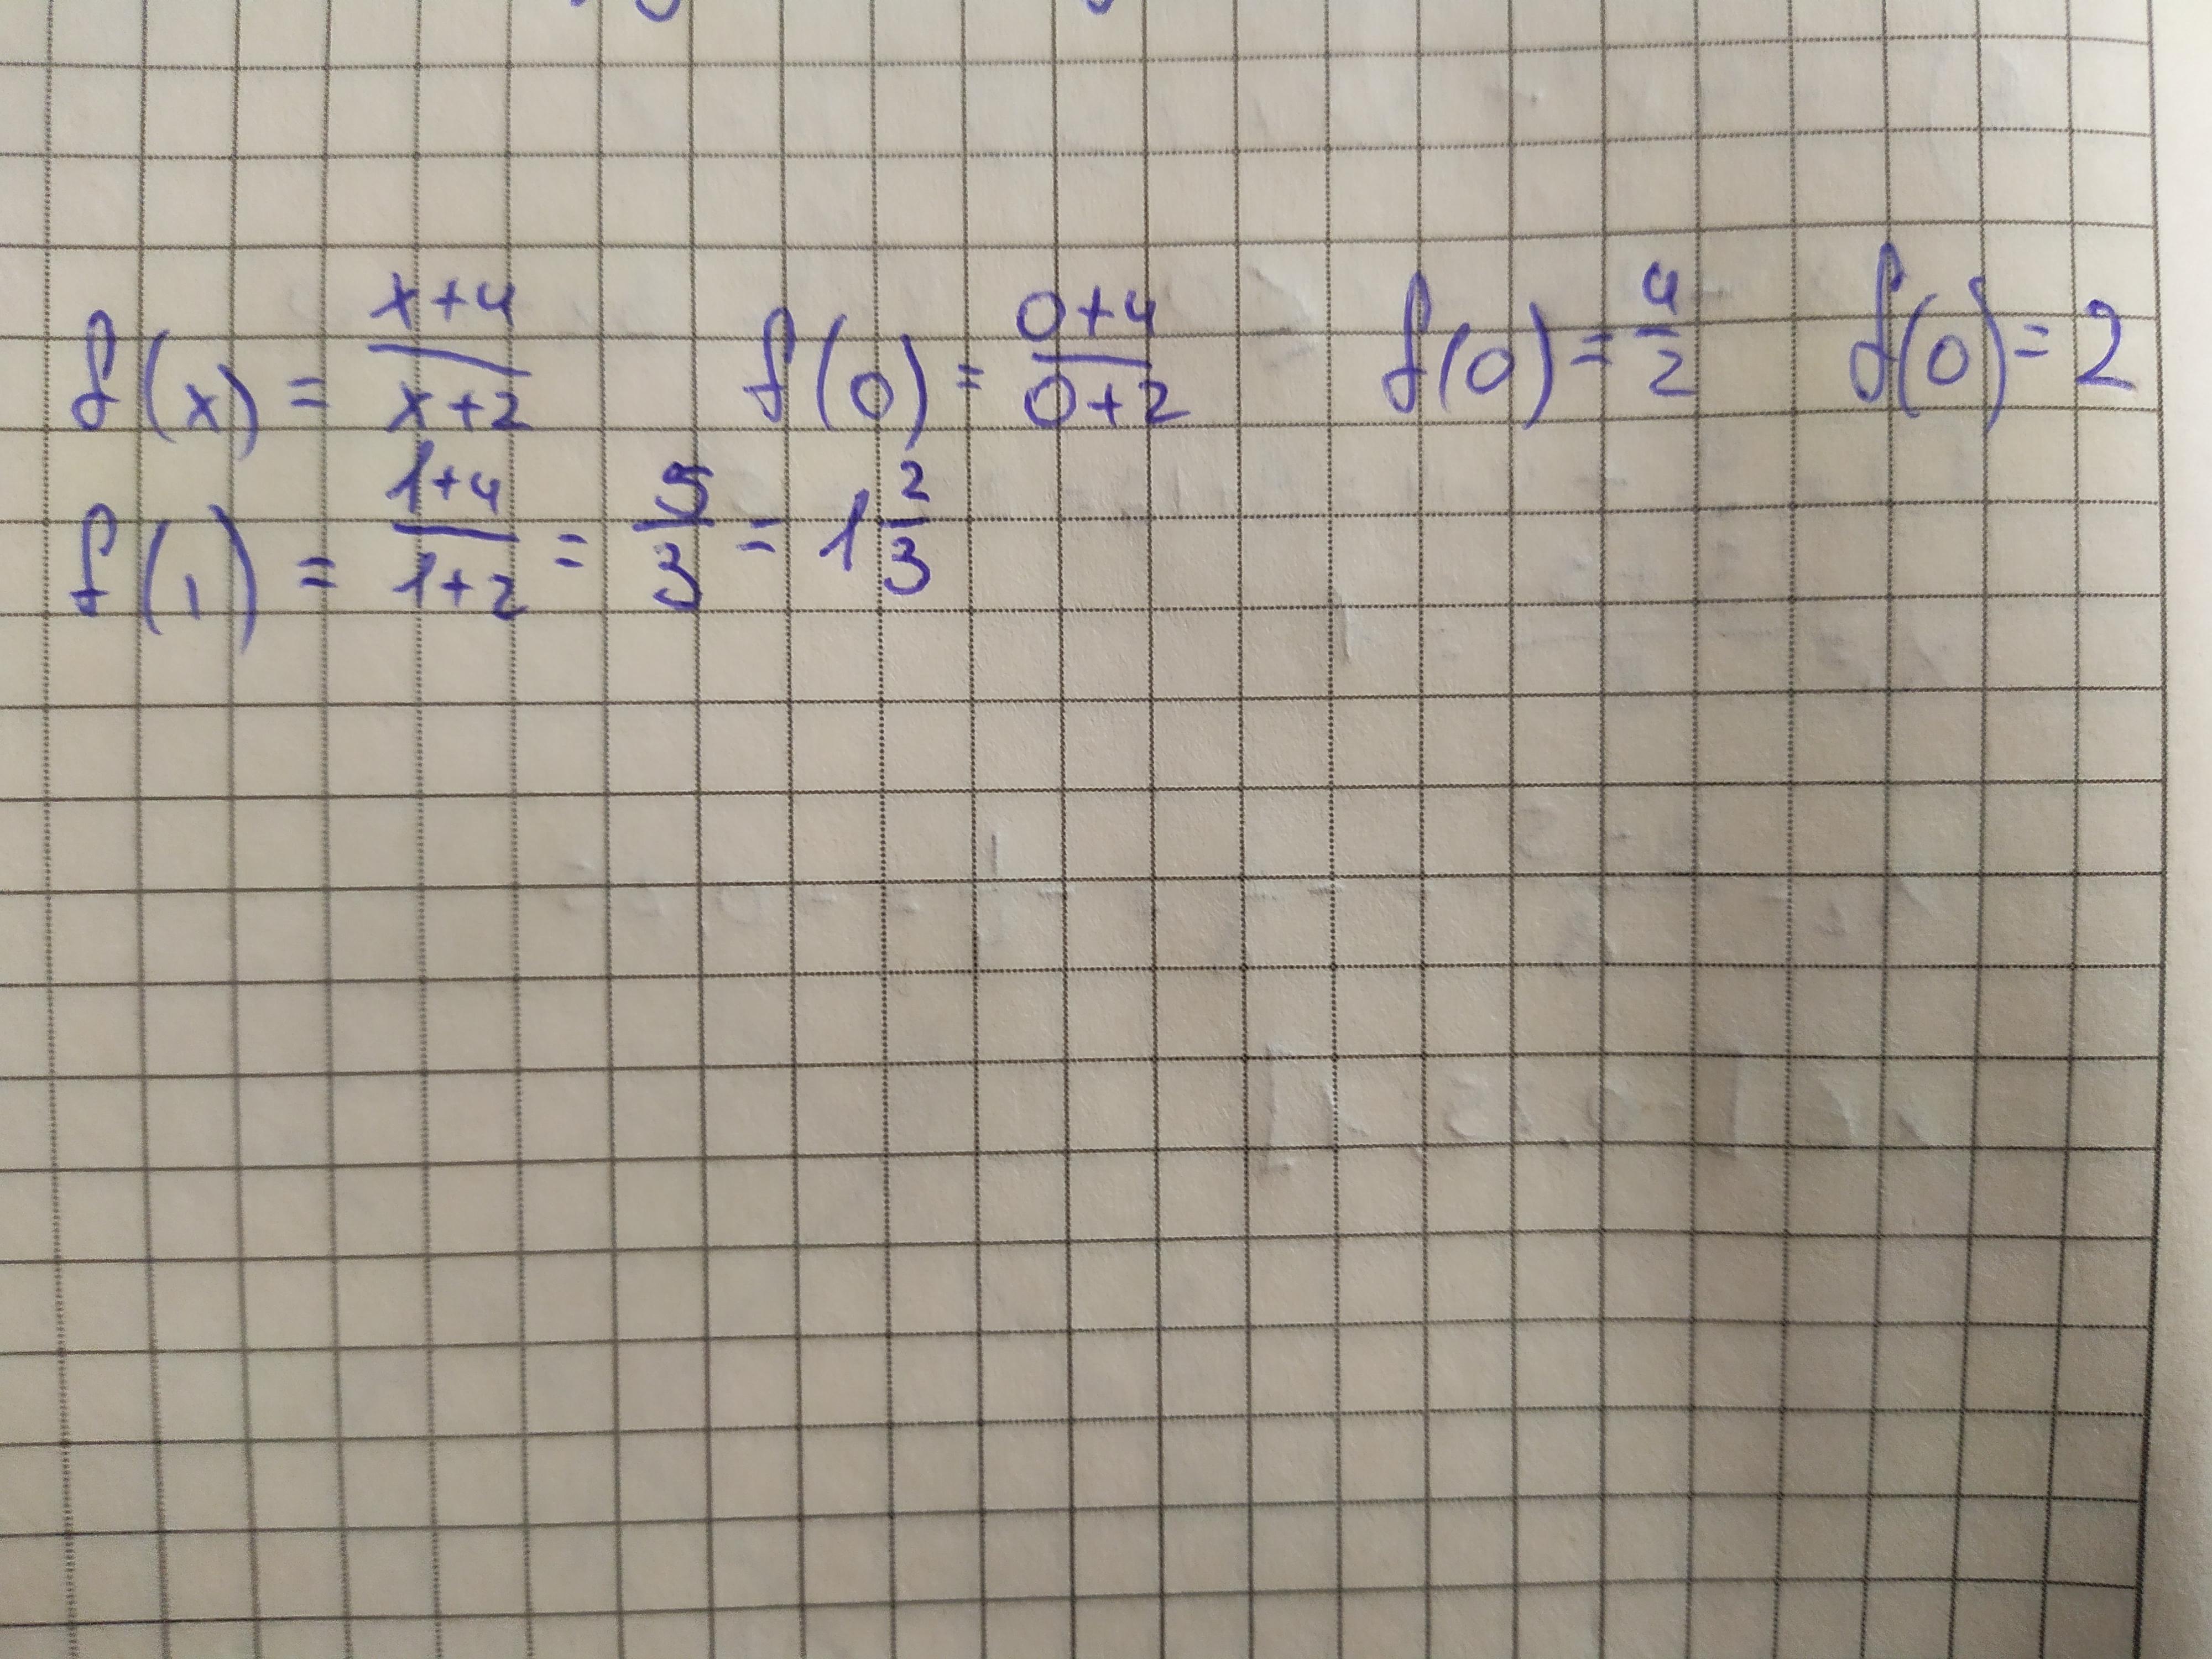 f(x) = \frac{x+4}{x+2} f(0) = \frac{0+4}{0+2} f(0) = \frac{4}{2} f(0) = 2
f(1) = \frac{1+4}{1+2} = \frac{5}{3} = 1\frac{2}{3}